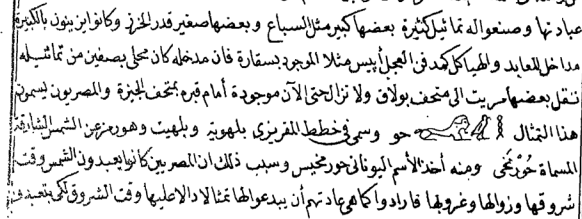 عبادتها وصنعوا له تماثيل كثيرة بعضها كبير مثل السباع وبعضها صغير قدر الخرز وكانوا يزينون بالكبيرة
مداخل المعابد والهياكل كمعبد العجل أبيس مثلا الموجود بسقارة فان مدخله كان محلى بصفين من تماثيله
نقل بعضها مريت الى متحف بولاق ولا تزال حتى الآن موجودة أمام قبره بمتحف الجيزة والمصريون يسمون
هذا التمثال حو وسمى في خطط المقريزى بلهوبة وبلهيت وهو رمز عن الشمس الشارقة
المسماة حورمخى ومنه أخذ الأسم اليونانى حورمخيس وسبب ذلك ان المصريين كانوا يعبدون الشمس وقت
شروقها وزوالها وغروبها فأرادوا كما هي عادتهم أن يبدعوا لها تمثالا دالا عليها وقت الشروق لكى يتعبد